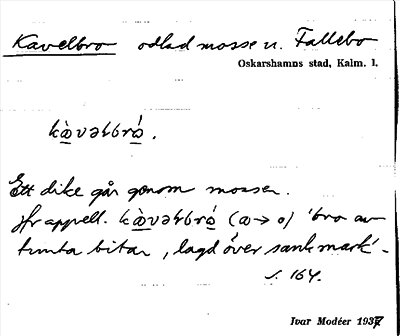 Kavelbro odlad mosse n. Fallebo
Oskarshamns stad, Kalm. l.
kàvəlbró.
Ett dike går genom mossen.
Jfr appell. kàvəlbró (a→o) 'bro av
runta bitar, lagd över sank mark'.
s. 164.
Ivar Modéer 1937